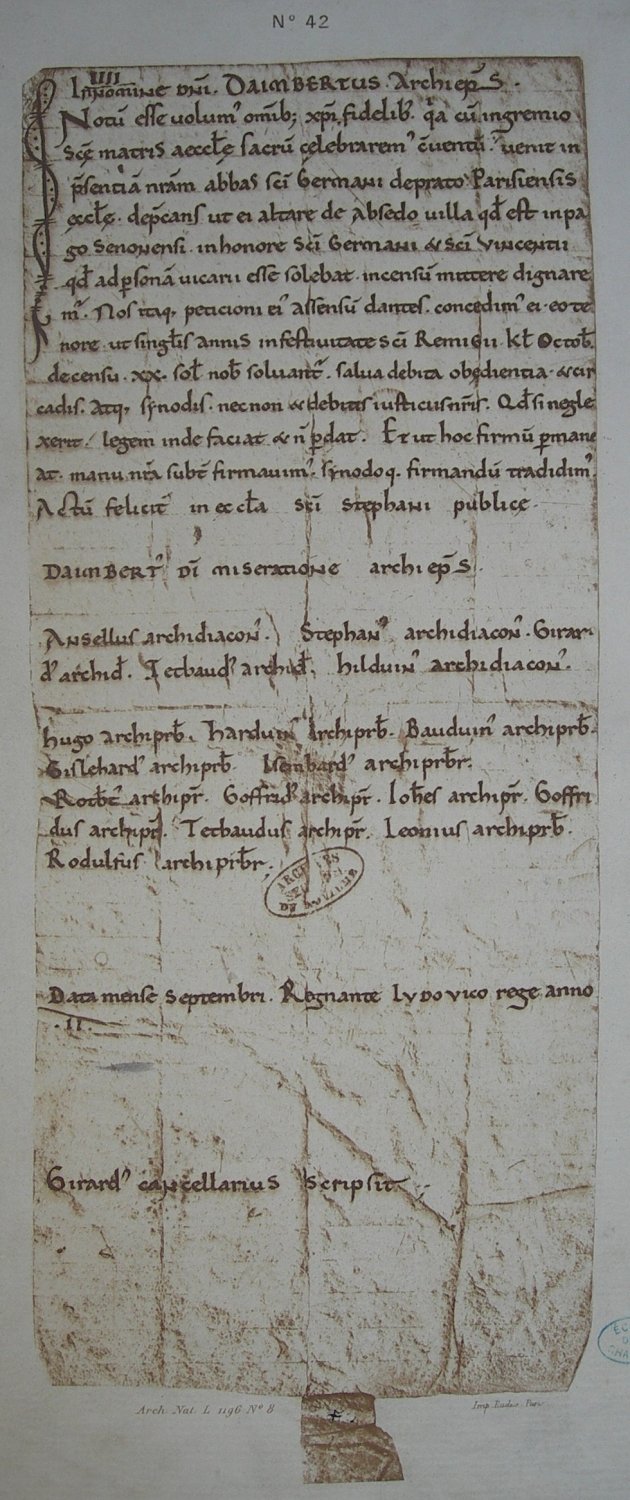 Nº 42
IIII
In nomine dñi. DAIMBERTUS Archiep̄S.
Notū esse volum' omīb; xp̄i fidelib'. qa cū in gremio
scē matris aeccłe sacrū celebrarem' c̄ventū. venit in
p̄sentiā nrām abbas scī Germani de prato Parisiensis
eccłe. dep̄cans ut ei altare de Absedo villa qđ est in pa
go Senonensi. in honore Scī Germani & Scī Vincentii
qđ ad p̱sonā vicarii esse solebat. in censū mittere dignare
m'. Nos itaq, peticioni ei' assensū dantes. concedim' ei. eo te
nore. ut singłis annis in festivitate scī Remigii. Kł Octob̄.
de censu .xx. soł nob̄ solvant'. salva debita obedientia. & cir
cadis. atq, synodis. necnon & debitis iusticiis nr̄is. Qđ si negle
xerit. legem inde faciat & n̄ p̱dat. Et ut hoc firmū p̱mane
at. manu nr̄a subt' firmavim'. synodo q, firmandū tradidim'.
Actū felicit' in eccła scī Stephani publice.
DAIMBERT' DĪ miseratione archiep̄S.
Ansellus archidiacon'. Stephan' archidiacon'. Girar
d' archiđ. Tetbaud' archiđ. hilduin' archidiacon'.
hugo archipr̄b. harduin' Archipr̄b. Bauduin' archipr̄b.
Gislehard' archipr̄b. Isembard' archipr̄br.
Rotb̄t' archipr̄. Goffrid' archipr̄. Ioh̄es archipr̄. Goffri
dus archipr̄. Tetbaudus archipr̄. Leonius archipr̄b.
Rodulfus archipr̄br.
Data mense Septembri. Regnante Lydovico rege anno
.II.
Girard' cancellarius Scripsit.
Arch. Nat. L 1196 Nº 8
Imp. Eudes Paris